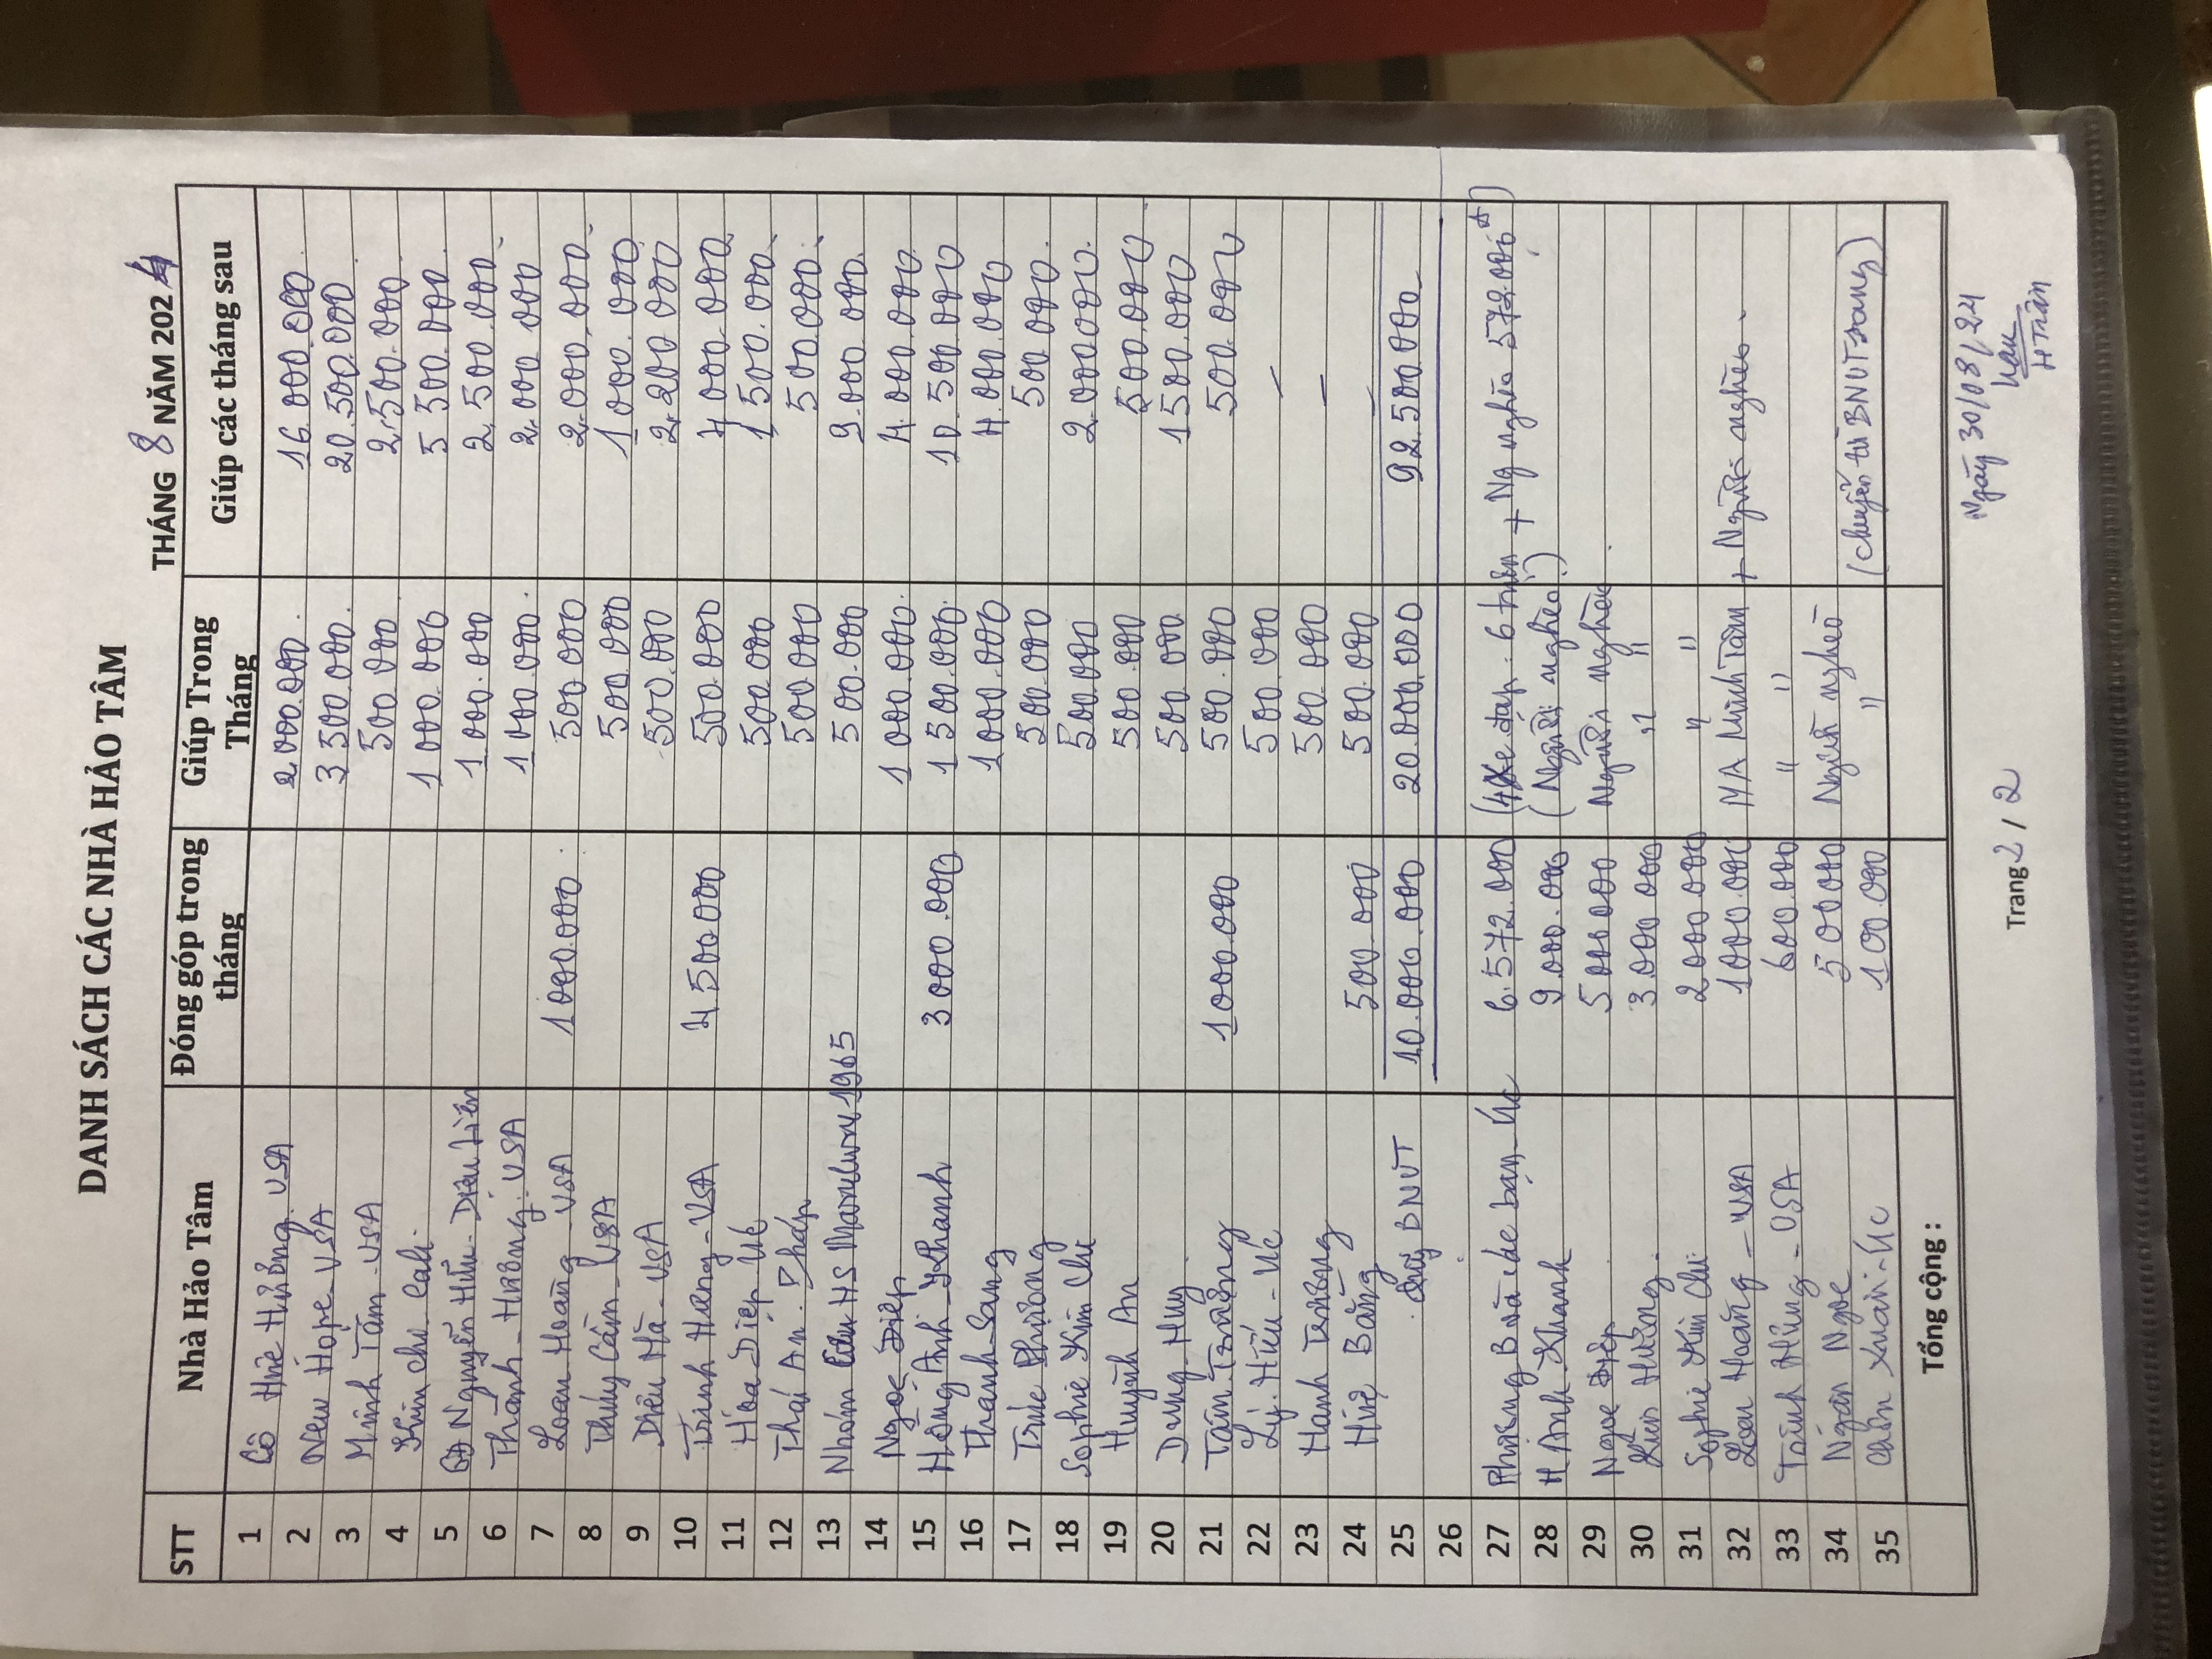 DANH SÁCH CÁC NHÀ HẢO TÂM
THÁNG 8 NĂM 2024
STT Nhà Hảo Tâm Đóng góp trong tháng Giúp Trong Tháng Giúp các tháng sau
1 Cô Huê Hương USA 2.000.000 16.000.000
2 New Hope - USA 3 500.000 20.500.000
3 Minh Tâm - USA 500.000 2.500.000
4 Kim Chu Cali 1 000.000 5 500.000
5 GĐ Nguyễn Hữu - Diệu Liên 1 000.000 2.500.000
6 Thanh - Hương USA 1 000.000 2.000.000
7 Loan Hoàng - USA 1000.000 500.000 2.000.000
8 Thúy Cầm - USA 500.000 1 000.000
9 Diệu Hà - USA 500.000 2.200 000
10 Trinh Hueng - USA 4 500.000 500.000 4 000.000
11 Hoa Diệp Úc 500.000 1 500.000
12 Thái An - Pháp 500.000 500.000
13 Nhóm Cựu HS 1965 500.000 9.000.000
14 Ngọc Diệp 1 000.000 4.000.000
15 Hồng Anh - Khanh 3 000.000 1 500.000 10.500.000
16 Thanh - Sang 1 000.000 4.000.000
17 Trúc Phương 500.000 500.000
18 Sophie Kim Chi 500.000 2.000.000
19 Huỳnh An 500.000 500.000
20 Dung - Huy 500.000 1500.000
21 Tâm Trương 1 000.000 500.000 500.000
22 Lý - Hiếu - Úc 500.000 -
23 Hạnh Trương 500.000 -
24 Huệ Bằng 500.000 500.000 -
25 Quỹ BNUT 10.000.000 20.000.000 92.500.000
26
27 Phương B và các bạn - Úc 6.572.000 (4 Xe đạp. 6 triệu + Ng nghèo 572.000đ)
28 H Anh - Khanh 9.000.000 (Người nghèo)
29 Ngọc Điệp 5.000.000 Người nghèo
30 Kim Hương 3.000.000 " "
31 Sophie Kim Chi 2.000.000 " "
32 Loan Hoàng - USA 1.000.000 MA Minh Tâm + Người nghèo
33 Trinh Hueng - USA 600.000 " "
34 Ngân Ngọc 500.000 Người nghèo
35 Chân Xuân - Úc 100.000 " (chuyển từ BNUT sang)
Tổng cộng :
Trang 2 / 2
Ngày 30/08/24
H Trân